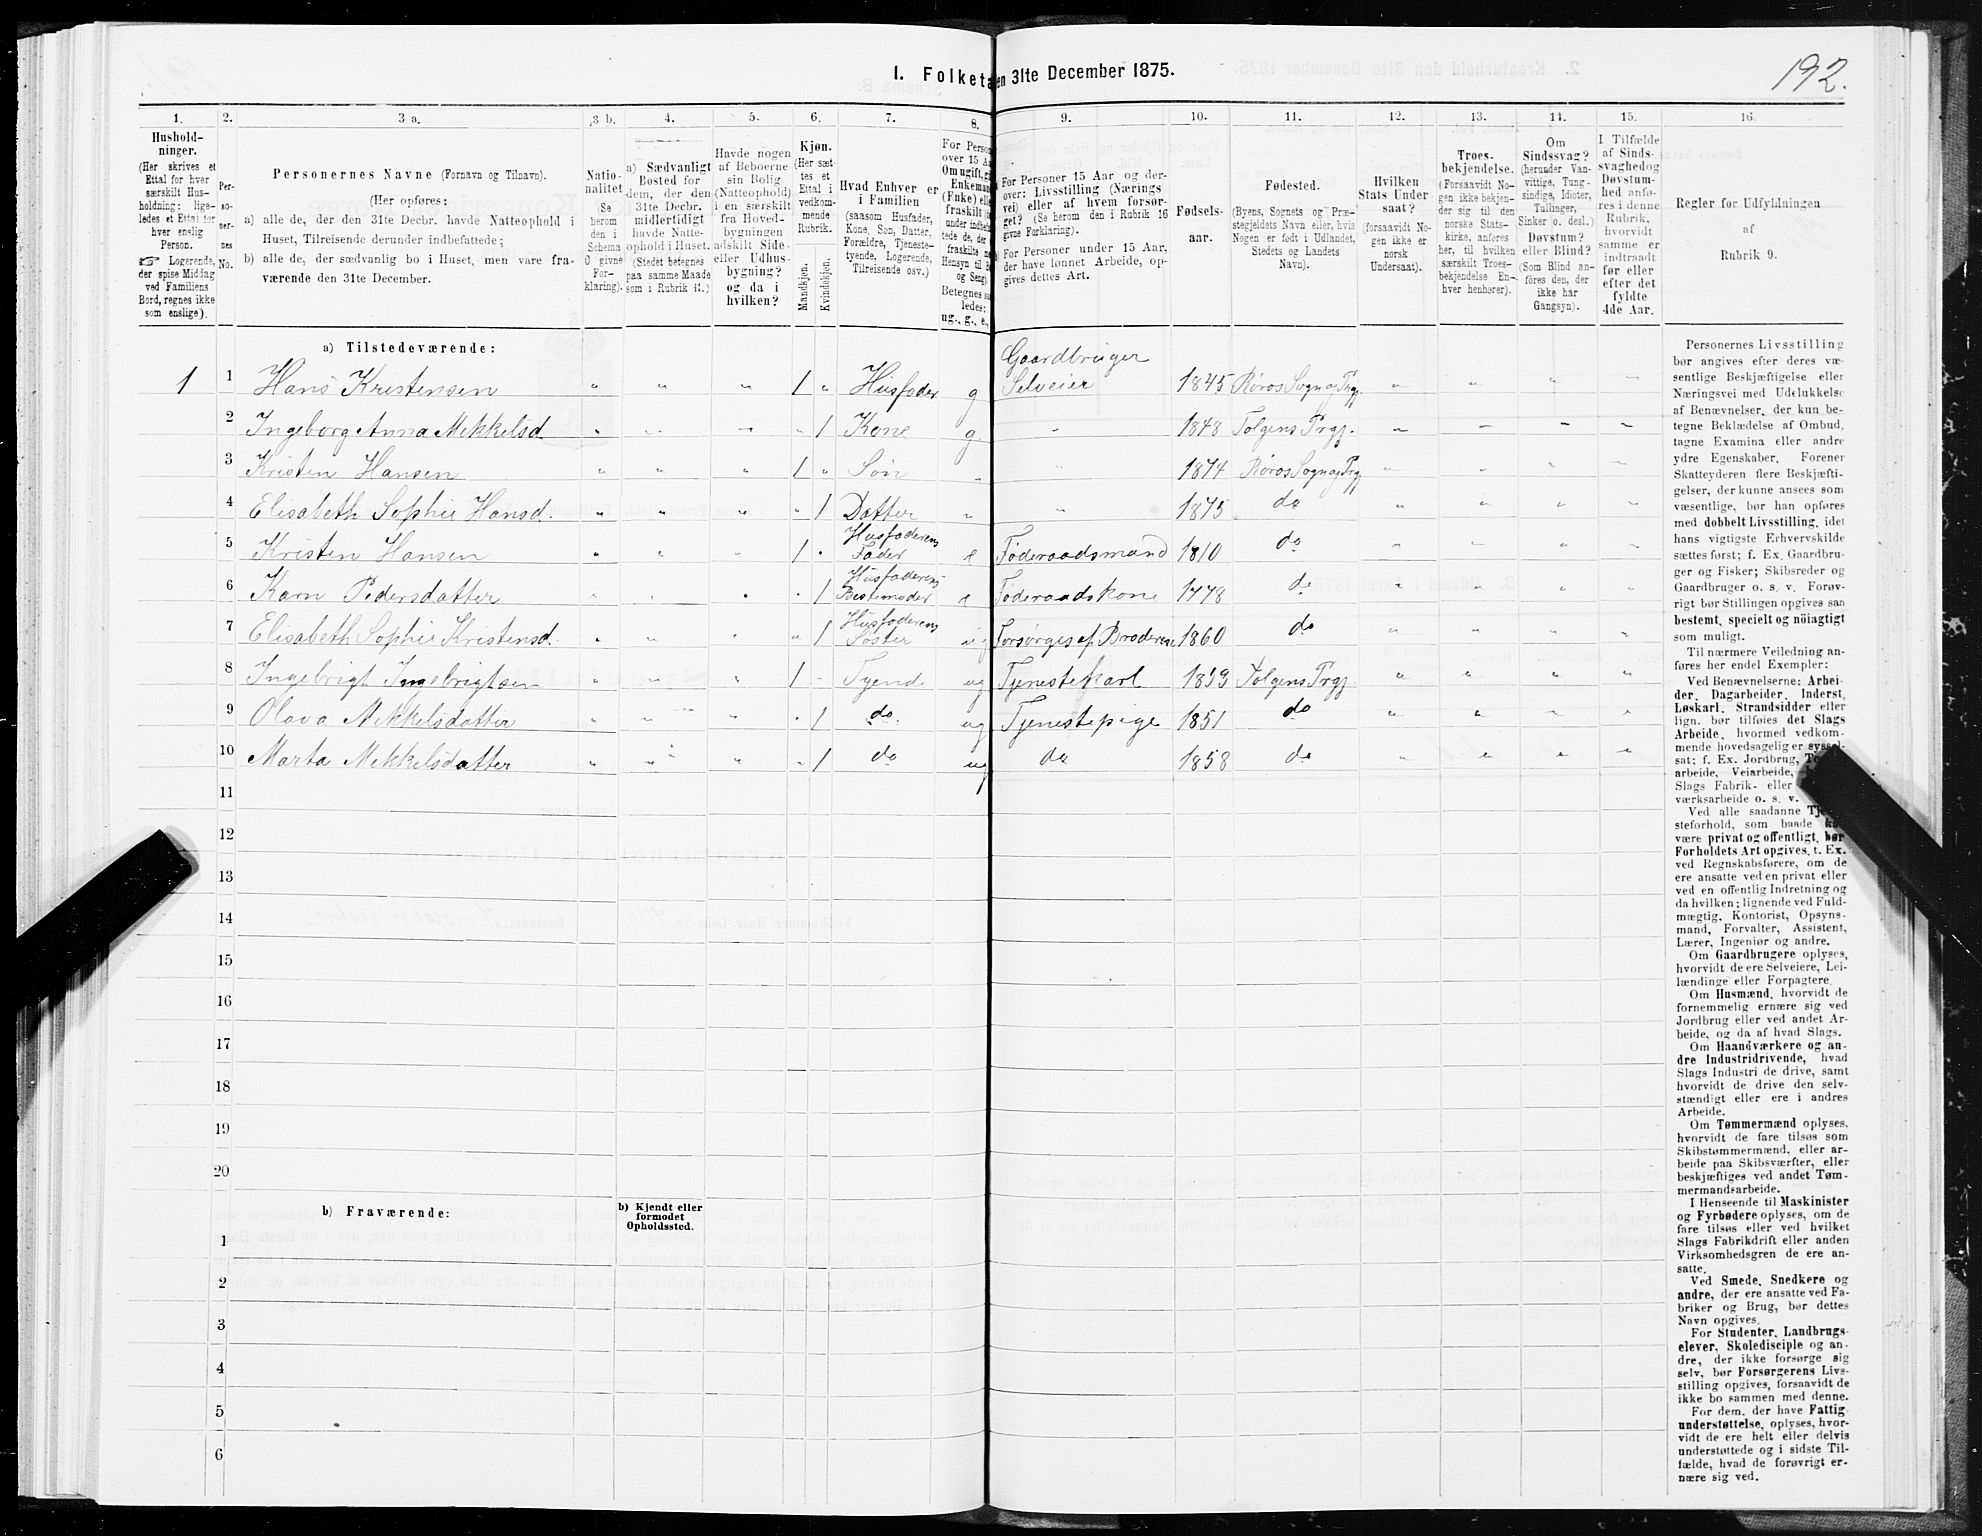 192.
I. Folketæ en 31te December 1875.
1. 2. 3 a. 3 b. 4. 5. 6. 7. 8. 9. 10. 11. 12. 13. 14. 15. 16.
Hushold-
ninger.
(Her skrives et
Ettal for hver
særskilt Hus-
holdning: lige-
ledes et Ettal for
hver enslig
Person.
☞ Logerende,
der spise Middag
ved Familiens
Bord, regnes ikke
som enslige).
Per-
so-
ner-
nes
No.
Personernes Navne (Fornavn og Tilnavn).
(Her opføres:
a) alle de, der den 31te Decbr. havde Natteophold i
Huset, Tilreisende derunder indbefattede;
b) alle de, der sædvanlig bo i Huset, men vare fra-
værende den 31te December.
Natio-
nalitet
(Se
herom
den i
Schema
C givne
For-
klaring).
a) Sædvanligt
Bosted for
dem, der den
31te Decbr.
midlertidigt
havde Natte-
ophold i Huset.
(Stedet betegnes
paa samme Maade
som i Rubrik 11.)
Havde nogen
af Beboerne
sin Bolig
(Natteophold)
i en særskilt
fra Hoved-
bygningen
adskilt Side-
eller Udhus-
bygning?
og da i
hvilken?
Kjøn.
(Her sæt-
tes et
Ettal i
vedkom-
mende
Rubrik.
Mandkjøn.
Kvindekjøn.
Hvad Enhver er
i Familien
(saasom Husfader,
Kone, Søn, Datter,
Forældre, Tjeneste-
tyende, Logerende,
Tilreisende osv.)
For Person
over 15 Aa
Om ugift, gi
Enkeman
(Enke) elle
fraskilt (
Betegnes sa
ledes:
ug., g., e.,
For Personer 15 Aar og der-
over: Livsstilling (Nærings
vei) eller af hvem forsør-
get? (Se herom den i Rubrik 16
givne Forklaring).
For Personer under 15 Aar,
der have lønnet Arbeide, op-
gives dettes Art.
Fødsels-
aar.
Fødested.
(Byens, Sognets og Præ-
stegjeldets Navn eller, hvis
Nogen er født i Udlandet,
Stedets og Landets
Navn).
Hvilken
Stats Under
saat?
(forsaavidt No-
gen ikke er
norsk
Undersaat).
Troes-
bekjendelse.
(Forsaavidt No-
gen ikke bekjen-
der sig til den
norske Stats-
kirke, anføres
her, til hvilken
særskilt Troes-
bekjendelse En-
hver henhører).
Om
Sindssvag?
(herunder Van-
vittige, Tung-
sindige, Idioter,
Tullinger,
Sinker o. desl.)
Døvstum?
eller Blind?
(Som Blind an-
føres den, der
ikke har
Gangsyn).
I Tilfælde
af Sinds-
svaghed og
Døvstum-
hed anfø-
res i denne
Rubrik,
hvorvidt
samme er
indtraadt
før eller
efter det
fyldte
4de Aar.
Regler for Udfyldningen
af
Rubrik 9.
a) Tilstedeværende:
1 1 Hans Kristensen „ „ „ 1 „ Husfader g Gaardbruger Selveier 1845 Røros Sogn og Prgj. „ „ „ „
2 Ingeborg Anna Mikkelsd. „ „ „ „ 1 Kone g „ 1848 Tolgens Prgj. „ „ „ „
3 Kristen Hansen „ „ „ 1 „ Søn „ „ 1874 Røros Sogn og Prgj „ „ „ „
4 Elisabeth Sophie Hansd. „ „ „ „ 1 Datter „ „ 1875 do „ „ „ „
5 Kristen Hansen „ „ „ 1 „ Husfaderens Fader e Føderaadsmand 1810 do „ „ „ „
6 Karn Pedersdatter „ „ „ „ 1 Husfaderens Bestemoder e Føderaadskone 1778 do „ „ „ „
7 Elisabeth Sophie Kristensd. „ „ „ „ 1 Husfaderens Søster ug Forsørges af Broderen 1860 do „ „ „ „
8 Ingebrigt Ingebrigtsen „ „ „ 1 „ Tyende ug Tjenestekarl 1859 Tolgens Prgj. „ „ „ „
9 Olava Mikkelsdatter „ „ „ „ 1 do. ug Tjenestepige 1851 do „ „ „ „
10 Marta Mikkelsdatter „ „ „ „ 1 do ug do 1858 do „ „ „ „
11
12
13
14
15
16
17
18
19
20
b) Fraværende:
b) Kjendt eller
formodet
Opholdssted.
1
2
3
4
5
6
Personernes Livsstilling
bør angives efter deres væ-
sentlige Beskjæftigelse eller
Næringsvei med Udelukkelse
af Benævnelser, der kun be-
tegne Beklædelse af Ombud,
tagne Examina eller andre
ydre Egenskaber. Forener
Skatteyderen flere Beskjæfti-
gelser, der kunne ansees som
væsentlige, bør han opføres
med dobbelt Livsstilling, idet
hans vigtigste Erhvervskilde
sættes først; f. Ex. Gaardbru-
ger og Fisker; Skibsreder og
Gaardbruger o. s. v. Forøv-
rigt bør Stillingen opgives saa
bestemt, specielt og nöiagtigt
som muligt.
Til nærmere Veiledning an-
føres her endel Exempler:
Ved Benævnelserne: Arbei-
der, Dagarbeider, Inderst,
Løskarl, Strandsidder eller
lign. bør tilføies det Slags
Arbeide, hvormed vedkom-
mende hovedsagelig er syssel-
sat; f. Ex. Jordbrug,
arbeide, Veiarbeide,
Slags Fabrik- eller
værksarbeide o. s. v.
Ved alle saadanne
steforhold, som baade
være privat og offentligt, bør
Forholdets Art opgives, t. Ex.
ved Regnskabsførere, om de
ere ansatte ved en privat eller
ved en offentlig Indretning og
da hvilken; lignende ved Fuld-
mægtig, Kontorist, Opsyns-
mand, Forvalter, Assistent,
Lærer, Ingeniør og andre.
Om Gaardbrugere oplyses,
hvorvidt de ere Selveiere, Lei-
lændinge eller Forpagtere.
Om Husmænd, hvorvidt de
fornemmelig ernære sig ved
Jordbrug eller ved andet Ar-
beide, og da af hvad Slags.
Om Haandværkere og an-
dre Industridrivende, hvad
Slags Industri de drive, samt
hvorvidt de drive den selv-
stændigt eller ere i andres
Arbeide.
Om Tømmermænd oplyses,
hvorvidt de fare tilsøs som
Skibstømmermænd, eller ar-
beide paa Skibsværfter, eller
beskjæftiges ved andet Tøm-
mermandsarbeide.
I Henseende til Maskinister
og Fyrbødere oplyses, om de
fare tilsøs eller ved hvilket
Slags Fabrikdrift eller anden
Virksomhedsgren de ere an-
satte.
Ved Smede, Snedkere og
andre, der ere ansatte ved Fa-
briker og Brug, bør dettes
Navn opgives.
For Studenter, Landbrugs-
elever, Skoledisciple og an-
dre, der ikke forsørge sig
selv, bør Forsørgerens Livs-
stilling opgives, forsaavidt de
ikke bo sammen med denne.
For dem, der have Fattig-
understøttelse, oplyses, hvor-
vidt de ere helt eller delvis
understøttede og i sidste Til-
fælde, hvad de forøvrigt er-
nære sig ved.